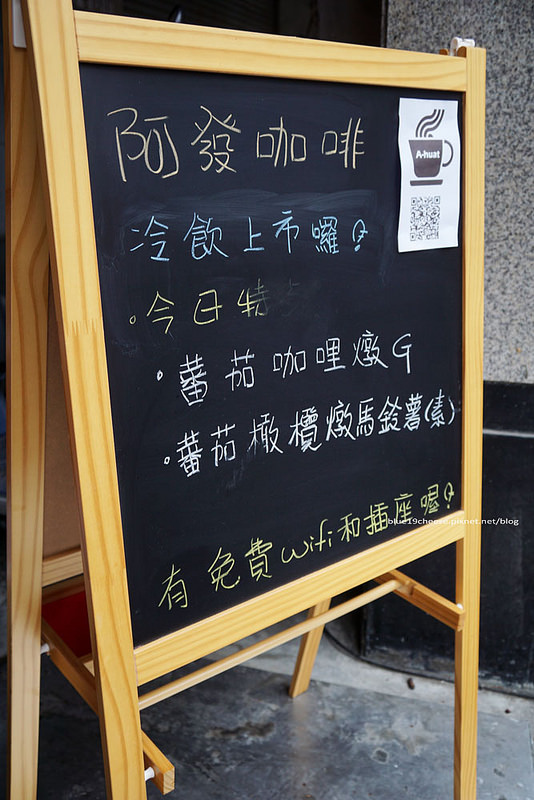 阿發咖啡
A-huat
冷飲上市囉!
今日特
蕃茄咖哩燉G
蕃茄橄欖燉馬鈴薯(素)
有免費wifi和插座喔!
blue19cheese.pixnet.net/blog